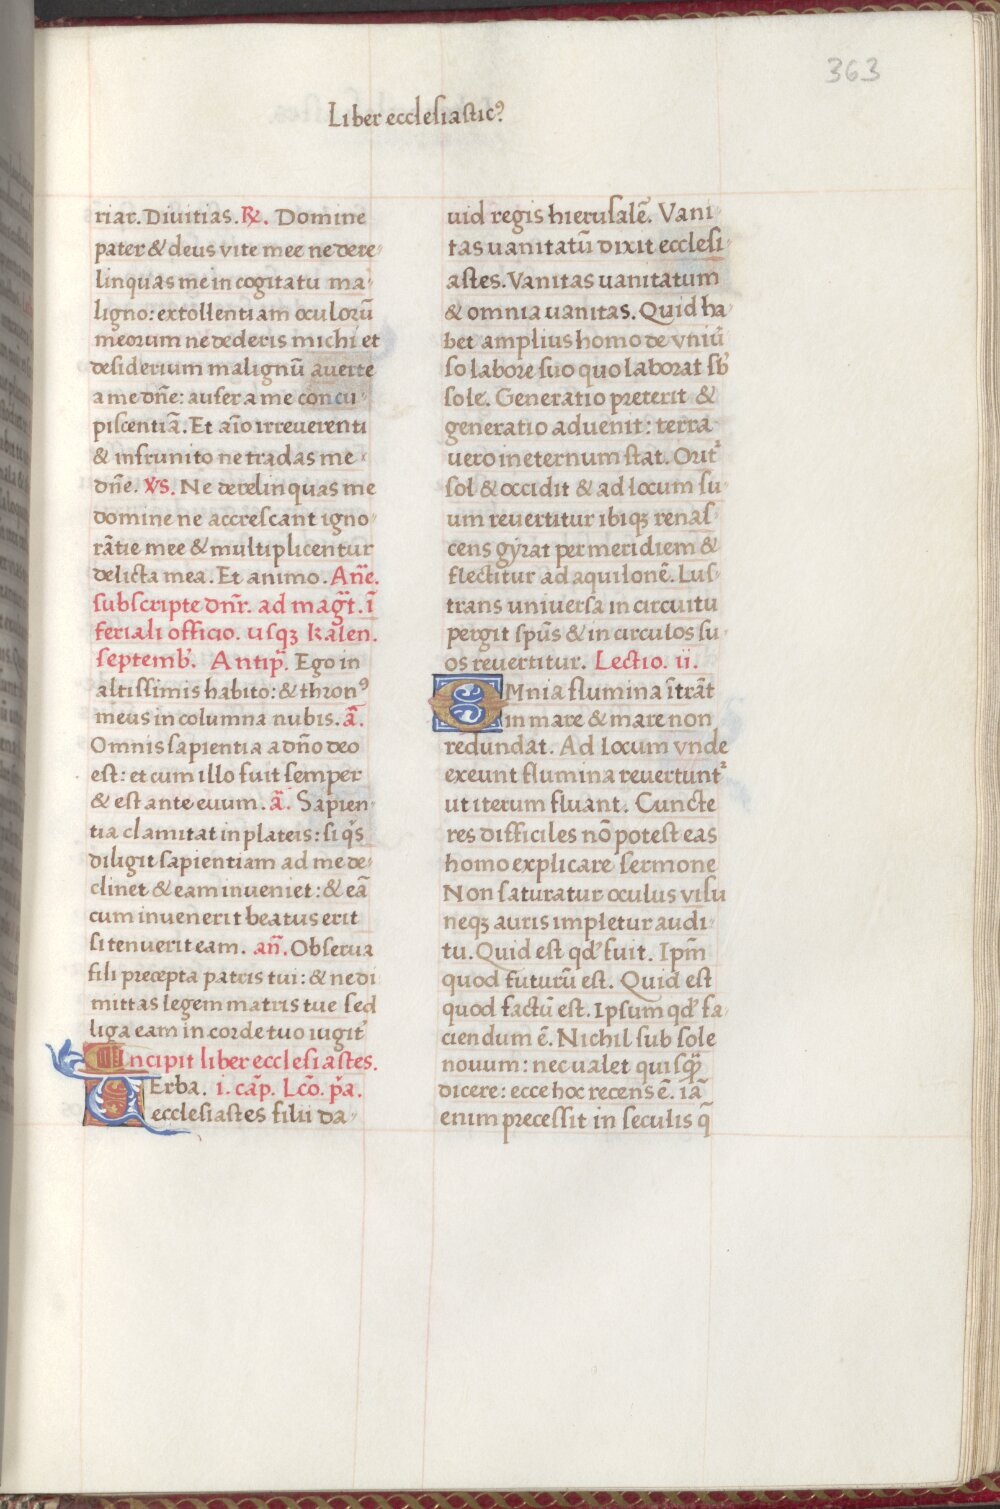 363
Liber ecclesiastic⁹
riar. Divitias. ℞. Domine
pater & deus vite mee ne dere
linquas me in cogitatu ma
ligno: extollentiam oculorū
meorum ne dederis michi et
desiderium malignū averte
a me dn̄e: aufer a me concu
piscentiā. Et aīo irreverenti
& infrunito ne tradas me
dn̄e. V̄S. Ne derelinquas me
domine ne accrescant igno
rātie mee & multiplicentur
delicta mea. Et animo. An̄e.
subscripte dn̄r. ad maḡt. ī
feriali officio. usqꝫ kalen.
septemb̄. Antip̄. Ego in
altissimis habito: & thron⁹
meus in columna nubis. ā.
Omnis sapientia a dn̄o deo
est: et cum illo fuit semper
& est ante evum. ā. Sapien
tia clamitat in plateis: si q̄s
diligit sapientiam ad me de
clinet & eam inveniet: & eā
cum invenerit beatus erit
si tenuerit eam. an̄. Observa
fili precepta patris tui: & ne di
mittas legem matris tue sed
liga eam in corde tuo iugit᷑
Incipit liber ecclesiastes.
VErba. i. cāp. Lc̄o. p̄a.
ecclesiastes filii da
uid regis hierusalē. Vani
tas uanitatū dixit ecclesi
astes. Vanitas uanitatum
& omnia uanitas. Quid ha
bet amplius homo de vniū
so labore suo quo laborat sb̄
sole. Generatio preterit &
generatio advenit: terra
uero in eternum stat. Orit᷑
sol & occidit & ad locum su
um revertitur ibiqꝫ renas
cens gẏrat per meridiem &
flectitur ad aquilonē. Lus
trans universa in circuitu
pergit sp̄us & in circulos su
os revertitur. Lectio. ii.
OMnia flumina ītrāt
in mare & mare non
redundat. Ad locum vnde
exeunt flumina revertunt᷑
ut iterum fluant. Cuncte
res difficiles nō potest eas
homo explicare sermone
Non saturatur oculus visu
neqꝫ auris impletur audi
tu. Quid est qd̄ fuit. Ipm̄
quod futurū est. Quid est
quod factū est. Ipsum qd̄ fa
ciendum ē. Nichil sub sole
novum: nec ualet quisqꝫ̄
dicere: ecce hoc recens ē. iā
enim precessit in seculis q̄